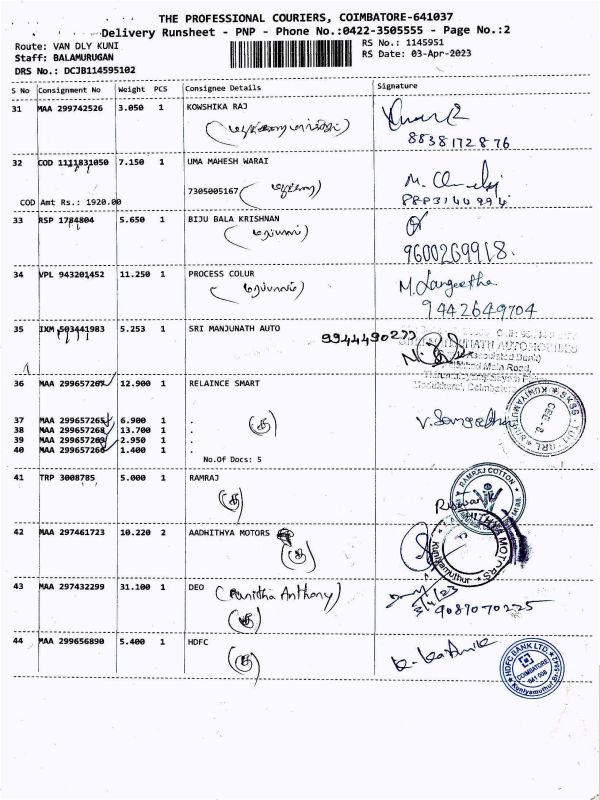 THE PROFESSIONAL COURIERS, COIMBATORE-641037
Delivery Runsheet - PNP - Phone No.:0422-3505555 - Page No.:2
Route: VAN DLY KUNI
RS No.: 1145951
Staff: BALAMURUGAN
RS Date: 03-Apr-2023
DRS No.: DCJB114595102
S No Consignment No Weight PCS Consignee Details Signature
31 MAA 299742526 3.050 1 KOWSHIKA RAJ
88381 72876
32 COD 1111831050 7.150 1 UMA MAHESH WARAI
7305005167
M.
COD Amt Rs.: 1920.00
33 RSP 1784804 5.650 1 BIJU BALA KRISHNAN
9600269918.
34 VPL 943201452 11.250 1 PROCESS COLUR
M. Sangeetha
9442649704
35 IXM 503441983 5.253 1 SRI MANJUNATH AUTO
9944490277
36 MAA 299657267 12.900 1 RELAINCE SMART
37 MAA 299657265 6.900 1 .
38 MAA 299657268 13.700 1 .
39 MAA 299657269 2.950 1 .
40 MAA 299657266 1.400 1 .
(கு)
V. Sangeetha
No.Of Docs: 5
41 TRP 3008785 5.000 1 RAMRAJ
(கு)
RAMRAJ COTTON
42 MAA 297461723 10.220 2 AADHITHYA MOTORS
(கு)
THYA MOTORS
Kuniyamuthur
43 MAA 297432299 31.100 1 DEO (Punitha Anthony)
(கு)
3/4/23
9087070225
44 MAA 299656890 5.400 1 HDFC
(கு)
HDFC BANK LTD.
COIMBATORE
641 008